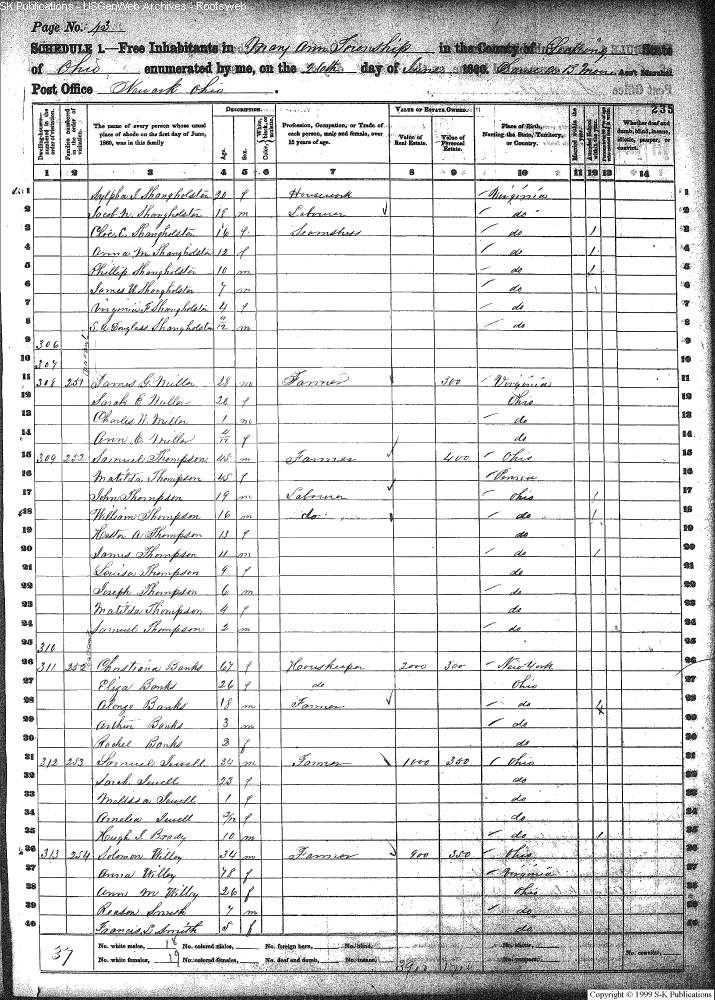 SK Publications - USGenWeb Archives - Rootsweb
Page No. 43
SCHEDULE 1.—Free Inhabitants in Mary Ann Township in the County of Licking State
of Ohio enumerated by me, on the 26th day of June 1860. Ass't Marshal
Post Office Newark Ohio.
235
DESCRIPTION. VALUE OF ESTATE OWNED.
Dwelling-houses—numbered in the order of visitation.
Families numbered in the order of visitation.
The name of every person whose usual place of abode on the first day of June, 1860, was in this family
Age.
Sex.
Color, White, black, or mulatto.
Profession, Occupation, or Trade of each person, male and female, over 15 years of age.
Value of Real Estate.
Value of Personal Estate.
Place of Birth, Naming the State, Territory, or Country.
Married within the year.
Attended School within the year.
Whether deaf and dumb, blind, insane, idiotic, pauper, or convict.
1 2 3 4 5 6 7 8 9 10 11 12 13 14
1 Sylpha J. Shangholster f Housework Virginia 1
2 Jacob N. Shangholster 18 m Laborer do 2
3 Cloe E. Shangholster 16 f Seamstress do 1 3
4 Anna M. Shangholster 12 f do 1 4
5 Phillip Shangholster 10 m do 1 5
6 James W. Shangholster 7 m do 6
7 Virginia F. Shangholster 4 f do 7
8 S. A. Douglass Shangholster m do 8
9 306 9
10 307 10
11 308 251 James G. Miller 28 m Farmer 300 Virginia 11
12 Sarah E Miller 20 f Ohio 12
13 Charles W. Miller 1 m do 13
14 Ann E. Miller f do 14
15 309 252 Samuel Thompson 45 m Farmer 400 Ohio 15
16 Matilda Thompson 45 f 16
17 John Thompson 19 m Laborer Ohio 1 17
18 William Thompson 16 m do do 1 18
19 Hester A Thompson 13 f do 19
20 James Thompson 11 m do 1 20
21 Louisa Thompson 9 f do 21
22 Joseph Thompson 6 m do 22
23 Matilda Thompson 4 f do 23
24 Samuel Thompson 2 m do 24
25 310 25
26 311 252 Christiana Banks 67 f Houskeeper 2000 300 New York 26
27 Eliza Banks 26 f do Ohio 27
28 Alonzo Banks 18 m Farmer do 28
29 Arthur Banks 3 m do 29
30 Rachel Banks 3 f do 30
31 312 253 Samuel Jewell 24 m Farmer 1000 350 Ohio 31
32 Sarah Jewell 23 f do 32
33 Melissa Jewell 1 f do 33
34 Amelia Jewell f do 34
35 Hugh J. Brady 10 m do 1 35
36 313 254 Solomon Wilby 34 m Farmer 900 350 Ohio 36
37 Anna Wilby 78 f Virginia 37
38 Ann M Wilby 26 f Ohio 38
39 Reason Smith 7 m do 39
40 Francis L Smith 5 f do 40
37
No. white males, 18 No. colored males, No. foreign born, No. blind, No. idiotic, No. convicts,
No. white females, 19 No. colored females, No. deaf and dumb, No. insane, No. paupers,
Copyright © 1999 S-K Publications